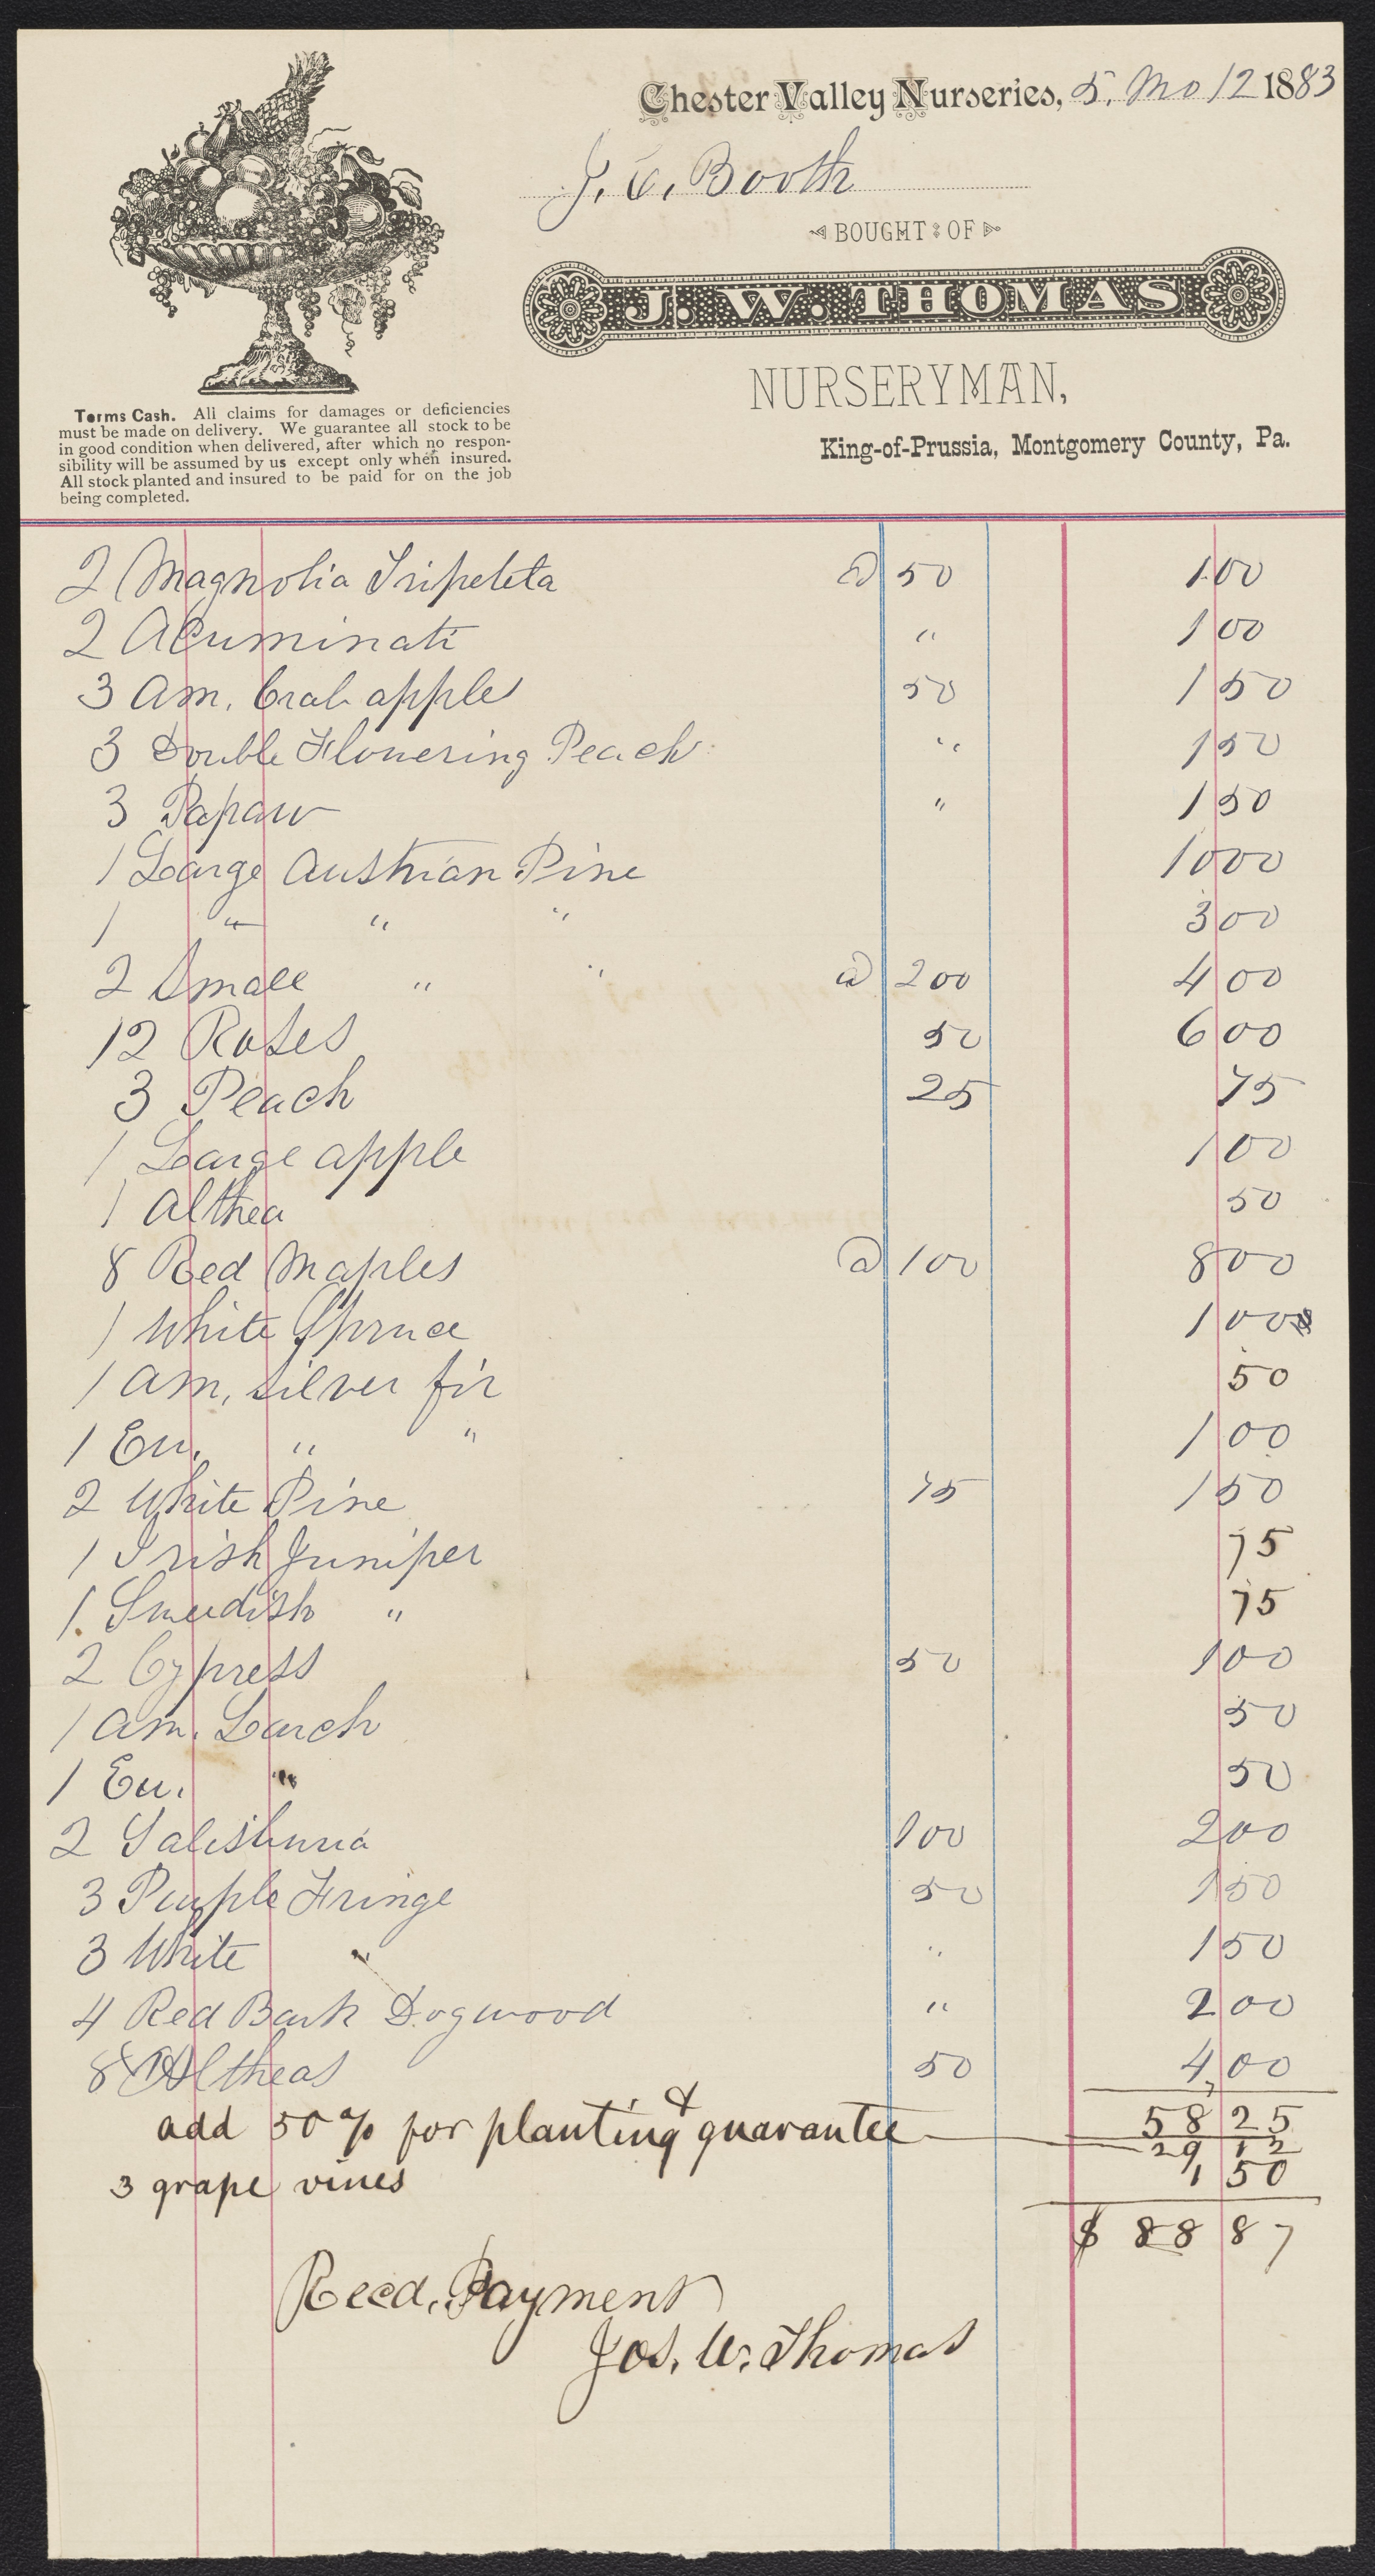 Chester Valley Nurseries, 5, Mo 12 1883
J. C. Booth
BOUGHT OF
J. W. THOMAS
NURSERYMAN,
King-of-Prussia, Montgomery County, Pa.
Terms Cash. All claims for damages or deficiencies
must be made on delivery. We guarantee all stock to be
in good condition when delivered, after which no respon-
sibility will be assumed by us except only when insured.
All stock planted and insured to be paid for on the job
being completed.
2 Magnolia Tripeleta @ 50 1 00
2 Acuminati " 1 00
3 Am. Crab apple 50 1 50
3 Double Flowering Peach " 1 50
3 Papaw " 1 50
1 Large Austrian Pine 10 00
1 " " " 3 00
2 Small " " @ 200 4 00
12 Roses 50 6 00
3 Peach 25 75
1 Large apple 1 00
1 Althea 50
8 Red Maples @ 100 8 00
1 White Spruce 1 00
1 Am, Silver fir 50
1 Eu. " " 1 00
2 White Pine 75 1 50
1 Irish Juniper 75
1 Sweedish " 75
2 Cypress 50 1 00
1 Am. Larch 50
1 Eu. " 50
2 Salisburia 100 2 00
3 Purple Fringe 50 1 50
3 White " " 1 50
4 Red Bark Dogwood " 2 00
8 Altheas 50 4,00
58 25
add 50% for planting & guarantee 29 12
3 grape vines 1 50
$ 88 87
Recd. Payment
Jos. W. Thomas